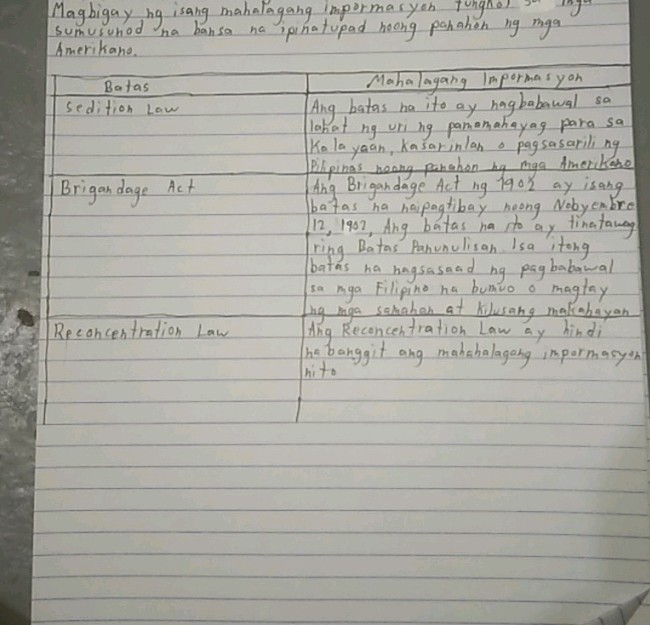 Magbigay ng isang mahalagang Impormasyon tungkol sa mga
sumusunod na bansa na ipinatupad noong panahon ng mga
Amerikano.
Batas
Mahalagang Impormasyon
Sedition Law
Ang batas na ito ay nagbabawal sa
lahat ng uri ng pamamahayag para sa
Kalayaan, Kasarinlan o pagsasarili ng
Pilipinas noong panahon ng mga Amerikano
Brigandage Act
Ang Brigandage Act ng 1902 ay isang
batas na naipagtibay noong Nobyembre
12, 1902, Ang batas na ito ay tinatawag
ring Batas Panunulisan Isa itong
batas na nagsasaad ng pagbabawal
sa mga Filipino na bumuo o magtay
ng mga samahan at kilusang makabayan
Reconcentration Law
Ang Reconcentration Law ay hindi
nabanggit ang mahahalagang impormasyon
nito